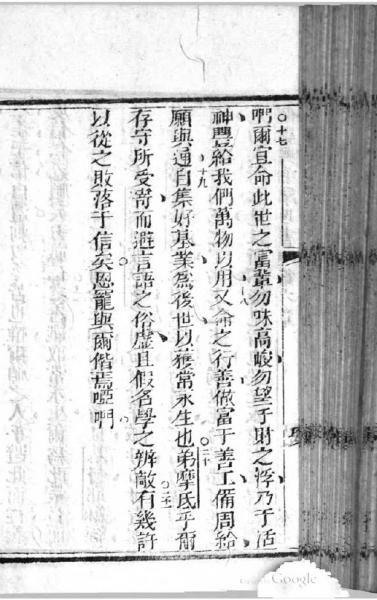 啊〇十七爾宜命此世之富輩勿味高峻勿望于財之浮乃于活
神豐給我們萬物以用十八又命之行善做富于善工備周給
願與通十九自集好基業為後世以獲常永生也〇二十弟摩氐乎爾
存守所受寄而避言語之俗虛且假名學之辨敵二一有幾許
以從之敗落于信矣恩寵與爾偕焉啞啊
Google